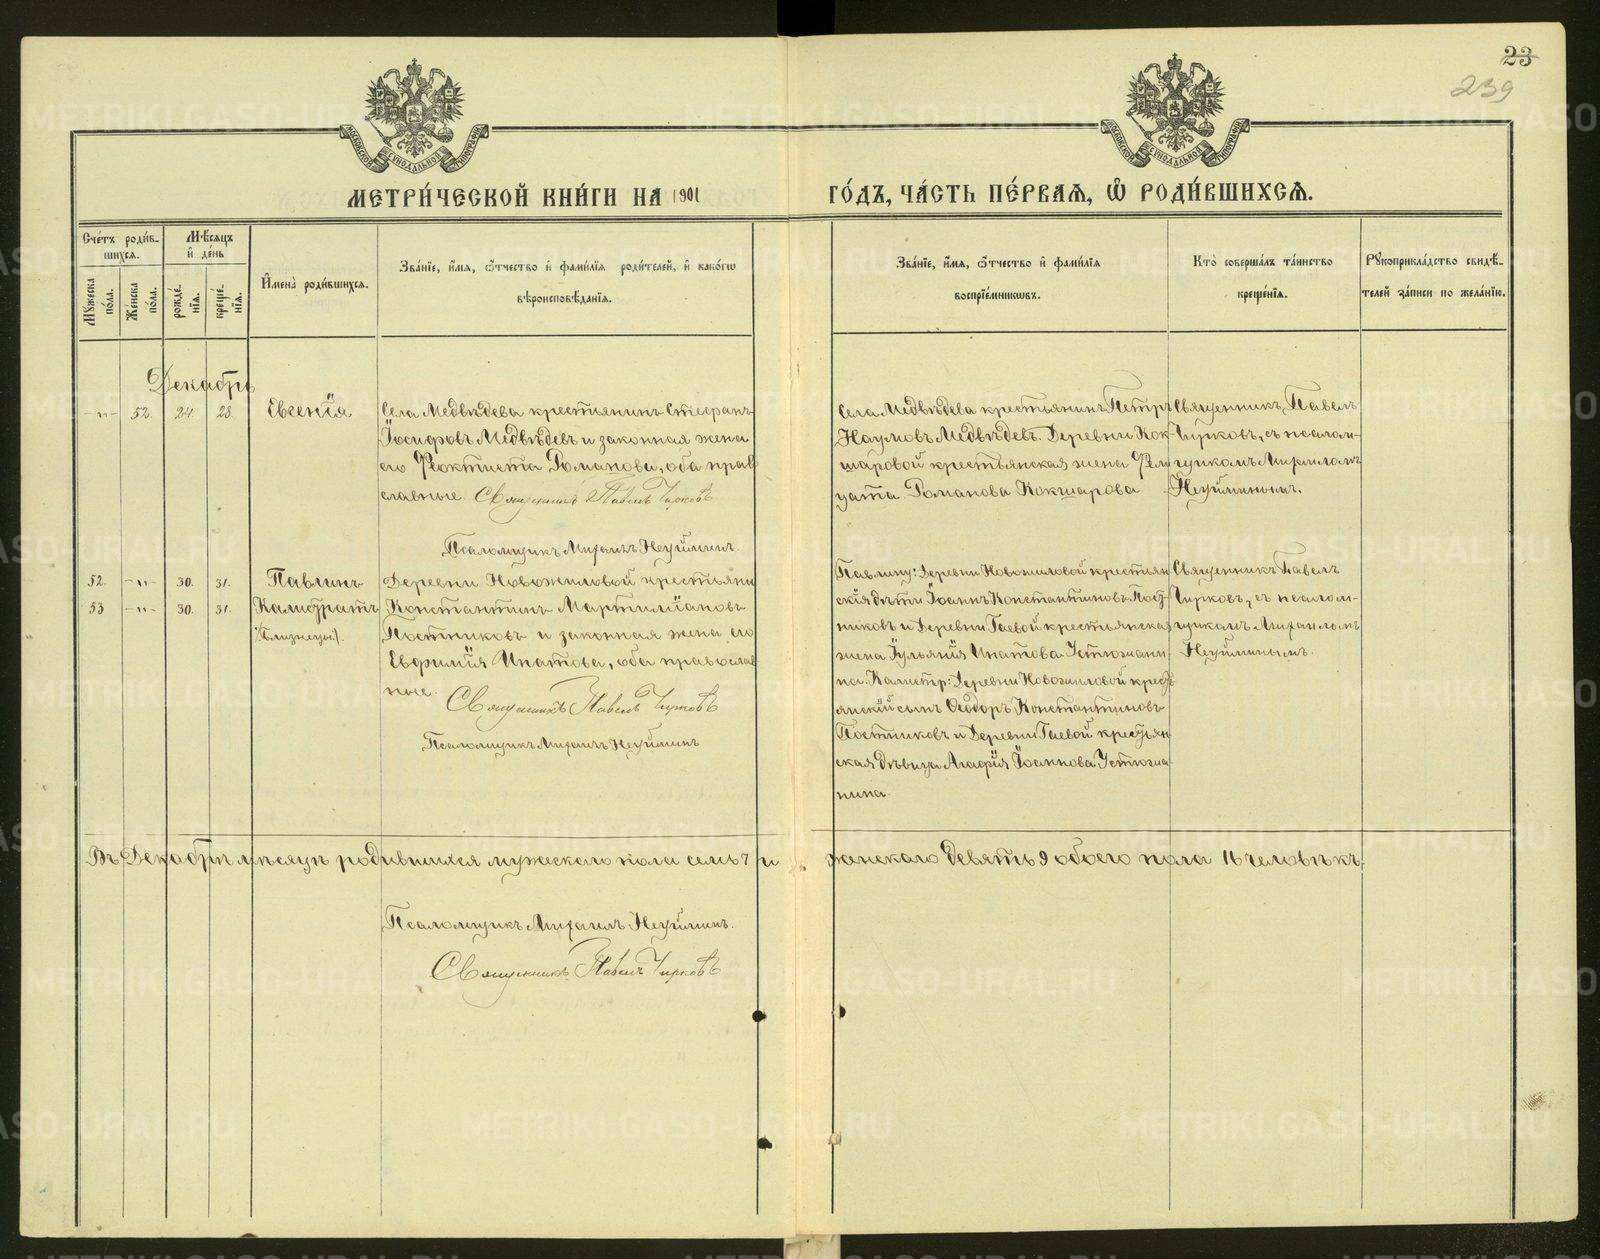 23
239
МОСКОВСКОЙ СѴНОДАЛЬНОЙ ТИПОГРАФІИ
МОСКОВСКОЙ СѴНОДАЛЬНОЙ ТИПОГРАФІИ
МЕТРИ́ЧЕСКОЙ КНИ́ГИ НА 1901 ГО́ДЪ, ЧА́СТЬ ПЕ́РВАѦ, Ѡ҆ РОДИ́ВШИХСѦ.
Сче́тъ роди́в-
шихся.
Мѣ́сяцъ
и҆ де́нь
Мꙋ́жеска
по́ла.
Же́нска
по́ла.
рожде́-
нїѧ.
креще́-
нїѧ.
И҆мена̀ роди́вшихся.
Зва́нїе, и҆́мя, ѻ҆́тчество и҆ фами́лїя роди́телей, и҆ како́гѡ
вѣроисповѣ́данїя.
Зва́нїе, и҆́мя, ѻ҆́тчество и҆ фами́лїя
воспрїе́мникѡвъ.
Кто̀ соверша́лъ та́инство
креще́нїя.
Рꙋкоприкла́дство свидѣ́-
телей за́писи по жела́нїю.
Декабрь
-„- 52. 24. 28. Евгенія
Села Медвѣдева крестьянинъ Стефанъ
Іосифовъ Медвѣдевъ и законная жена
его Феоктиста Романова, оба прав
славные Священникъ Павелъ Чирковъ
Псаломщикъ Михаилъ Неуйминъ.
Села Медвѣдева крестьянинъ Петръ
Наумовъ Медвѣдевъ. Деревни Кок-
шаровой крестьянская жена Фели
цата Романова Кокшарова
Священникъ Павелъ
Чирковъ, съ псалом-
щикомъ Михаиломъ
Неуйминымъ.
52. -„- 30. 31. Павлинъ
53 -„- 30. 31. Калистратъ
/:Близнецы:/.
Деревни Новожиловой крестьянин
Константинъ Мартиміановъ
Постниковъ и законная жена его
Евфимія Ипатова, оба православ
ные. Священникъ Павелъ Чирковъ
Псаломщикъ Михаилъ Неуйминъ
Павлину: Деревни Новожиловой крестьян
скія дѣти Іоаннъ Константиновъ Пост
никовъ и Деревни Гаевой крестьянская
жена Іуліанія Ипатова Устюжани
на. Калистр: Деревни Новожиловой крест
янскій сынъ Ѳеодоръ Константиновъ
Постниковъ и Деревни Гаевой крестьян
ская дѣвица Агафія Іоаннова Устюжа
нина.
Священникъ Павелъ
Чирковъ, съ псалом-
щикомъ Михаиломъ
Неуйминымъ.
Въ Декабрѣ мѣсяцѣ родившихся мужескаго пола семь 7 и женскаго девять 9 обоего пола 16 человѣкъ.
Псаломщикъ Михаилъ Неуйминъ.
Священникъ Павелъ Чирковъ
METRIKI.GASO-URAL.RU